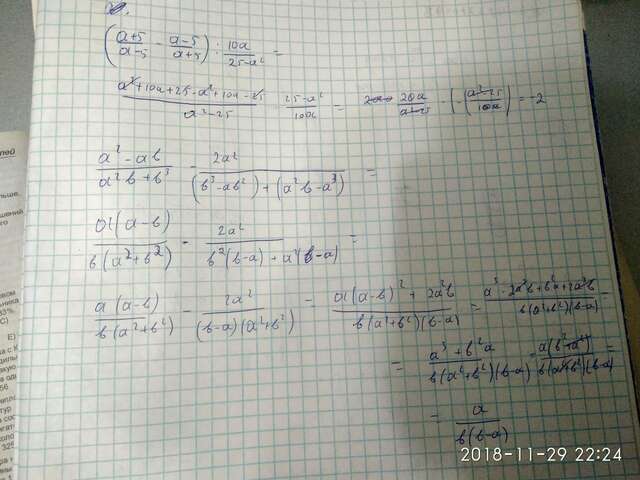 (a+5/a-5 - a-5/a+5) : 10a/25-a² =
a²+10a+25-a²+10a-25/a²-25 · 25-a²/10a = 20a/a²-25 · (-(a²-25/10a)) = -2
a²-ab/a²b+b³ - 2a²/(b³-ab²)+(a²b-a³) =
a(a-b)/b(a²+b²) - 2a²/b²(b-a)+a²(b-a) =
a(a-b)/b(a²+b²) - 2a²/(b-a)(a²+b²) = a(a-b)²+2a²b/b(a²+b²)(b-a) = a³-2a²b+b²a+2a²b/b(a²+b²)(b-a)
= a³+b²a/b(a²+b²)(b-a) = a(b²+a²)/b(a²+b²)(b-a) =
= a/b(b-a)
2018-11-29 22:24